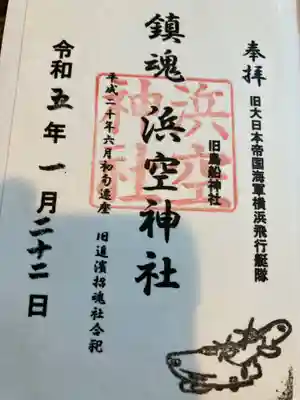 奉拝
旧大日本帝国海軍横浜飛行艇隊
旧鳥船神社
鎮魂 浜空神社
平成二十年六月初旬遷座 旧追濱招魂社合祀
令和五年一月二十二日
浜空
神社